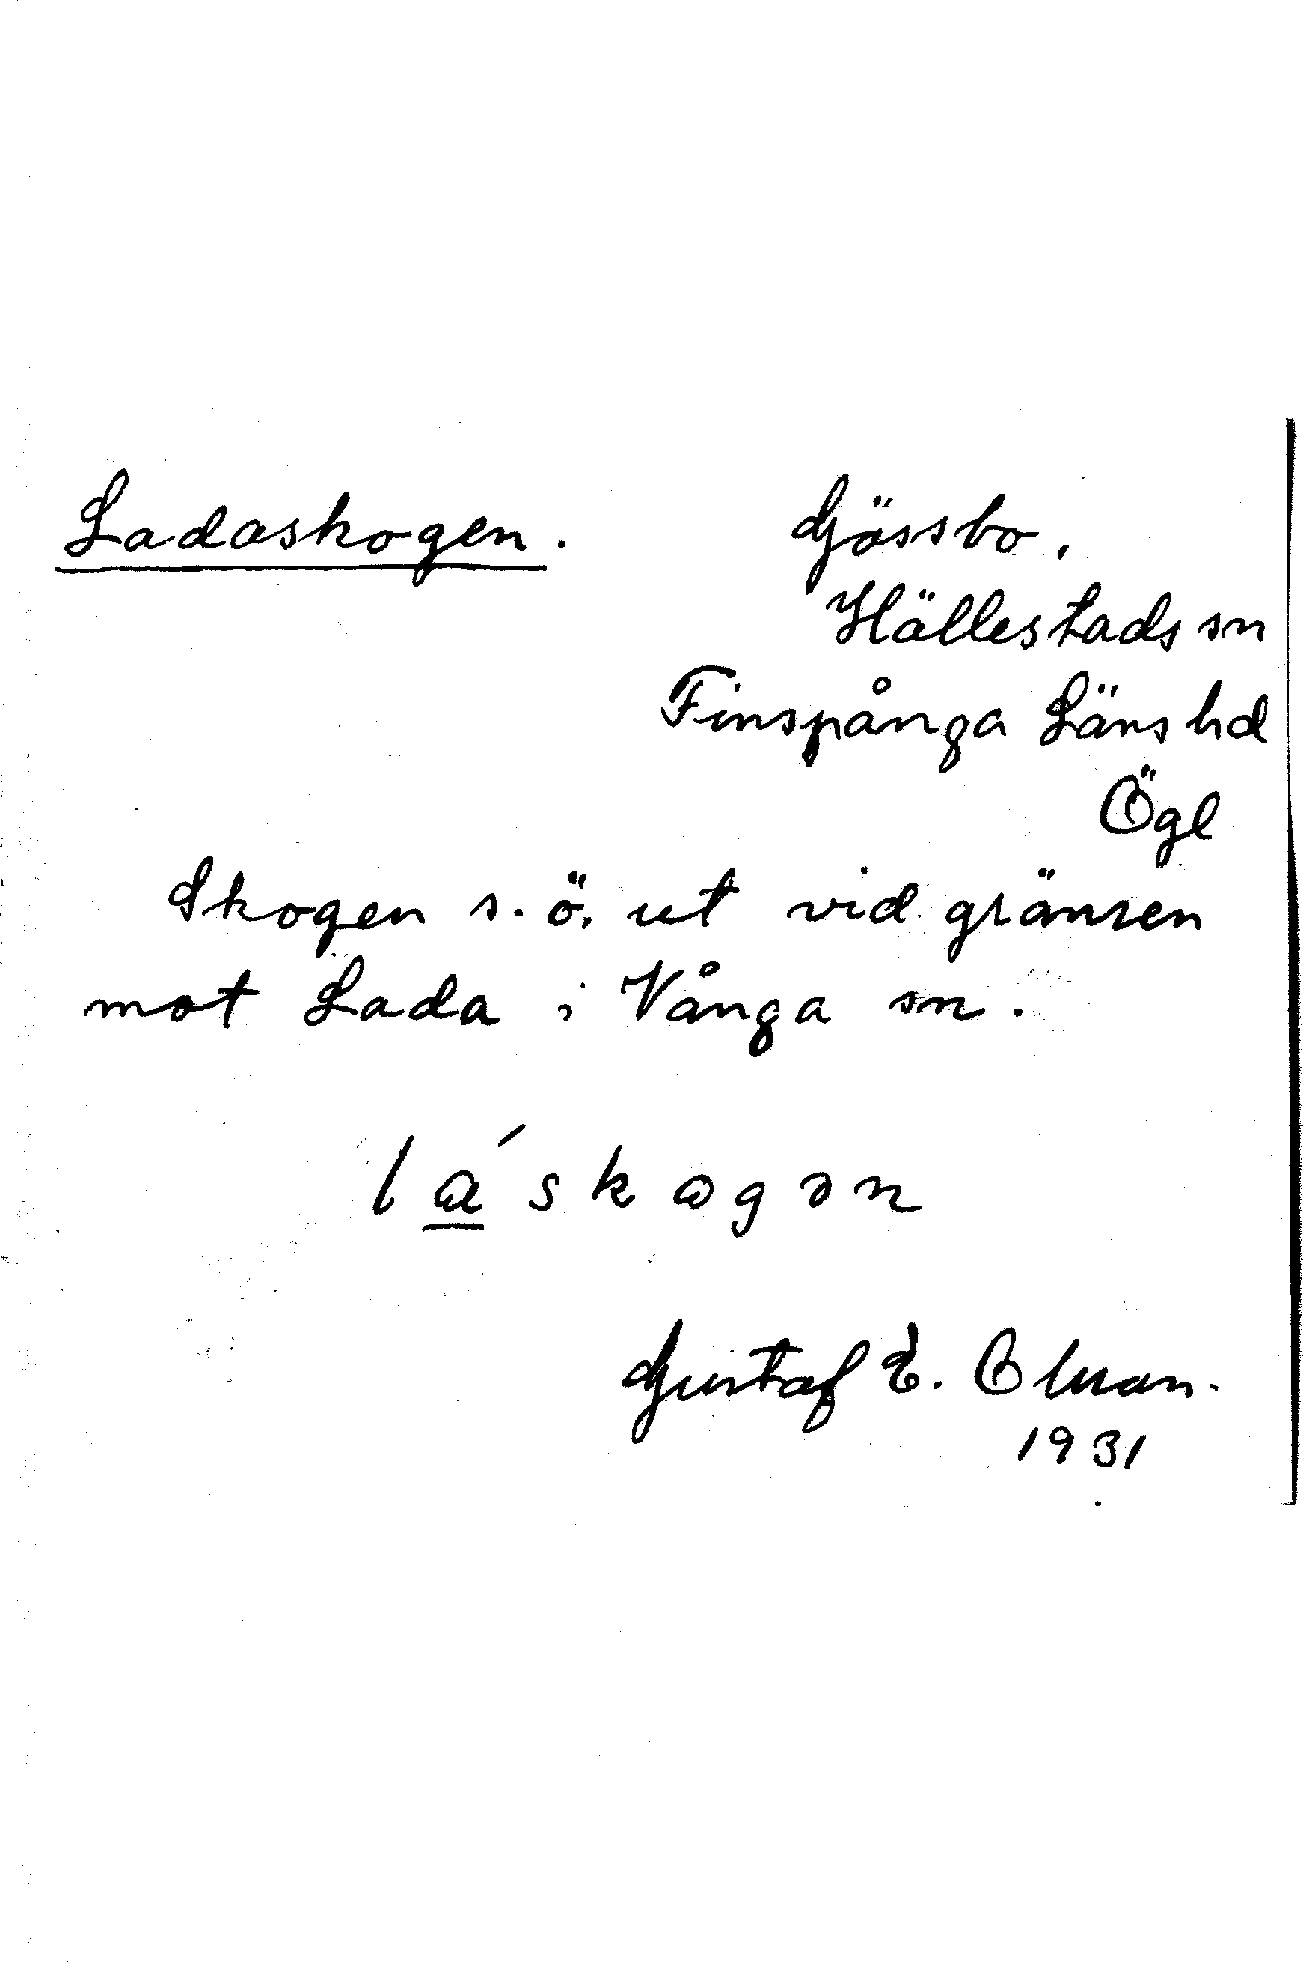 Ladaskogen. Gössbo,
Hällestads sn
Finspånga Läns hd
Ögl
Skogen s.ö. ut vid gränsen
mot Lada i Vånga sn.
la´skogən
Gustaf E. Olsson.
1931